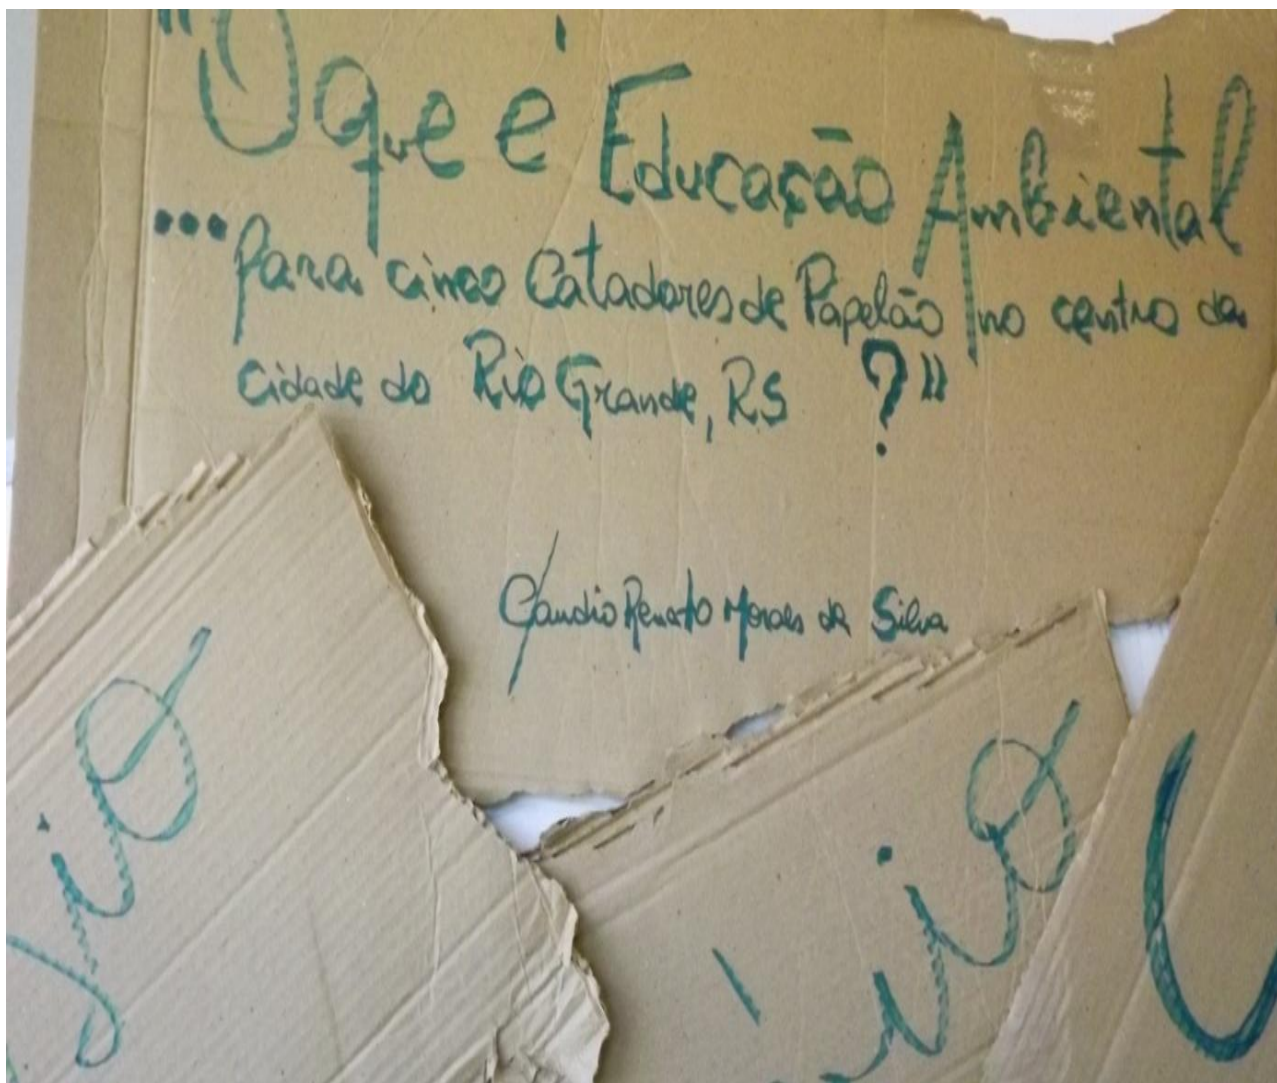 "O que é Educação Ambiental
... para cinco Catadores de Papelão no centro da
cidade do Rio Grande, RS ?"
Claudio Renato Moraes da Silva